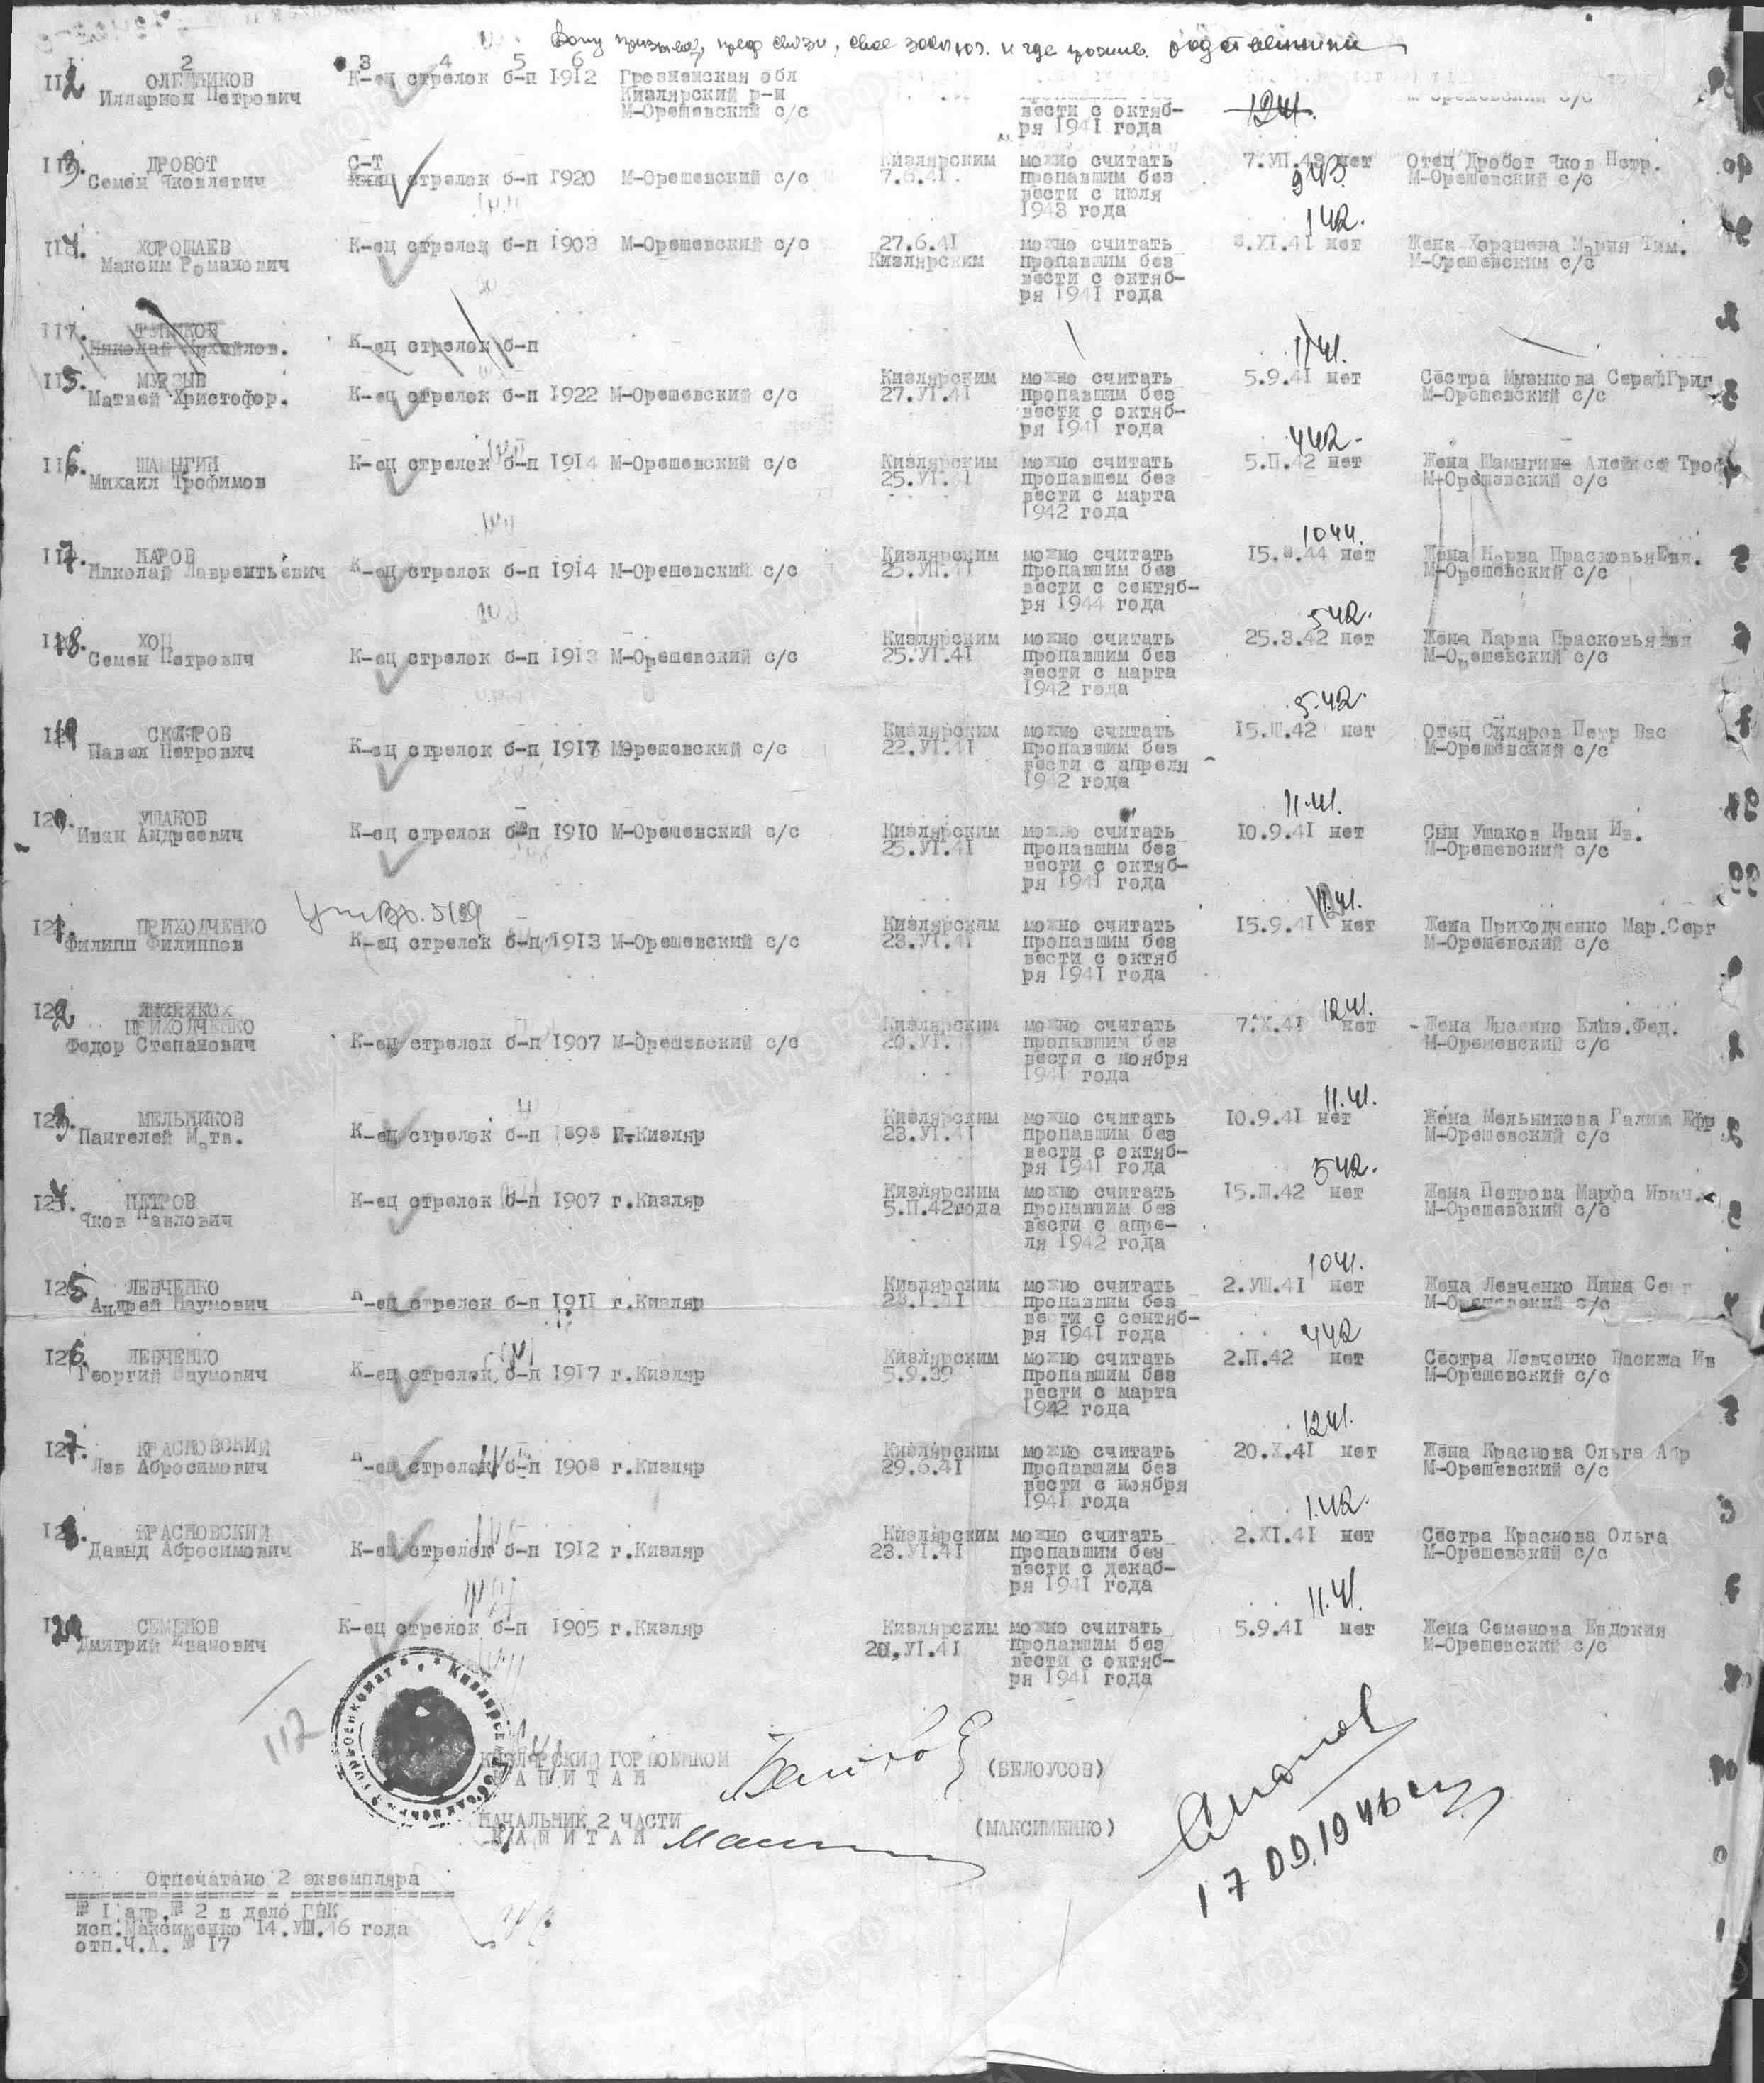 Кому призывал, пред связи, свое заключ. и где прожив. родственники
2 3 4 5 6 7
112 ОЛЕЙНИКОВ К-ец стрелок б-п 1912 Грозненская обл
Илларион Петрович Кизлярский р-н М-Орешевский с/с
М-Орешевский с/с вести с октяб- 1241.
ря 1941 года
113. ДРОБОТ С-Т Кизлярским можно считать 7.VII.43 нет Отец Дробот Яков Петр.
Семен Яковлевич стрелок б-п 1920 М-Орешевский с/с 7.6.41 пропавшим без 943. М-Орешевский с/с
вести с июля
1943 года
142.
114. ХОРОШАЕВ К-ец стрелок б-п 1903 М-Орешевский с/с 27.6.41 можно считать .XI.41 нет Жена Хорашева Мария Тим.
Максим Романович Кизлярским пропавшим без М-Орешевским с/с
вести с октяб-
ря 1941 года
117.
Николай Михайлов. К-ец стрелок б-п
1141.
115. МУЗЫВ Кизлярским можно считать 5.9.41 нет Сестра Музыкова Сераф.Григ
Матвей Христофор. К-ец стрелок б-п 1922 М-Орешевский с/с 27.VI.41 пропавшим без М-Орешевский с/с
вести с октяб-
ря 1941 года
442.
116. ШАМЫГИН К-ец стрелок б-п 1914 М-Орешевский с/с Кизлярским можно считать 5.П.42 нет Жена Шамыгина Алейксей Троф
Михаил Трофимов 25.VI.41 пропавшем без М-Орешевский с/с
вести с марта
1942 года
1044.
117. НАРОВ Кизлярским можно считать 15.8.44 нет Жена Нарва Прасковья Евл.
Николай Лаврентьевич К-ец стрелок б-п 1914 М-Орешевский с/с 25.VII.41 пропавшим без М-Орешевский с/с
вести с сентяб-
ря 1944 года
542.
118. ХОЦ Кизлярским можно считать 25.3.42 нет Жена Нарва Прасковья
Семен Петрович К-ец стрелок б-п 1913 М-Орешевский с/с 25.VI.41 пропавшим без М-Орешевский с/с
вести с марта
1942 года
5.42.
119 СКЛЯРОВ Кизлярским можно считать 15.Ш.42 нет Отец Скляров Петр Вас
Павел Петрович К-ец стрелок б-п 1917 Мэрешевский с/с 22.VI.41 пропавшим без М-Орешевский с/с
вести с апреля
1942 года
11.41.
120. УШАКОВ Кизлярским можно считать 10.9.41 нет Сын Ушаков Иван Ив.
Иван Андреевич К-ец стрелок б-п 1910 М-Орешевский с/с 25.VI.41 пропавшим без М-Орешевский с/с
вести с октяб-
ря 1941 года
1141.
121. ПРИХОДЧЕНКО Кизлярским можно считать 15.9.41 нет Жена Приходченко Мар.Серг
Филипп Филиппов К-ец стрелок б-п 1913 М-Орешевский с/с 23.VI.41 пропавшим без М-Орешевский с/с
вести с октяб
ря 1941 года
122 ЛЫСЕНКО 1241.
ПРИХОДЧЕНКО Кизлярским можно считать 7.X.41 нет Жена Лысенко Елиз.Фед.
Федор Степанович К-ец стрелок б-п 1907 М-Орешевский с/с пропавшим без М-Орешевский с/с
вести с ноября
1941 года
11.41.
123. МЕЛЬНИКОВ Кизлярским можно считать 10.9.41 нет Жена Мельникова Галина Ефр
Пантелей Матв. К-ец стрелок б-п 1898 Г.Кизляр 23.VI.41 пропавшим без М-Орешевский с/с
вести с октяб-
ря 1941 года
542.
124. ПЕТРОВ К-ец стрелок б-п 1907 г.Кизляр Кизлярским можно считать 15.Ш.42 нет Жена Петрова Марфа Иван.
Яков Павлович 5.П.42года пропавшим без М-Орешевский с/с
вести с апре-
ля 1942 года
1041.
125 ЛЕВЧЕНКО Кизлярским можно считать 2.УШ.41 нет Жена Левченко Нина Се
Андрей Наумович К-ец стрелок б-п 1911 г.Кизляр пропавшим без М-Орешевский с/с
вести с сентяб-
ря 1941 года
442
126. ЛЕВЧЕНКО Кизлярским можно считать 2.П.42 нет Сестра Левченко Васиша Ив
Георгий Наумович К-ец стрелок б-п 1917 г.Кизляр 5.9.39 пропавшим без М-Орешевский с/с
вести с марта
1942 года
1241.
127. КРАСНОВСКИЙ Кизлярским можно считать 20.X.41 нет Жена Краснова Ольга Абр
Лев Абросимович К-ец стрелок б-п 1908 г.Кизляр 29.6.41 пропавшим без М-Орешевский с/с
вести с ноября
1941 года
1.42.
128. КРАСНОВСКИЙ Кизлярским можно считать 2.XI.41 нет Сестра Краснова Ольга
Давыд Абросимович К-ец стрелок б-п 1912 г.Кизляр 23.VI.41 пропавшим без М-Орешевский с/с
вести с декаб-
ря 1941 года
11.41.
129 СЕМЕНОВ К-ец стрелок б-п 1905 г.Кизляр Кизлярским можно считать 5.9.41 нет Жена Семенова Евдокия
Дмитрий Иванович 20.VI.41 пропавшим без М-Орешевский с/с
вести с октяб-
ря 1941 года
112
КИЗЛЯРСКИЙ ГОРВОЕНКОМ
КАПИТАН (БЕЛОУСОВ)
НАЧАЛЬНИК 2 ЧАСТИ
КАПИТАН (МАКСИМЕНКО)
17 09.1946
Отпечатано 2 экземпляра
№ 1 адр.№ 2 в дело ГВК
исп.Максименко 14.УШ.46 года
отп.Ч.А. № 17